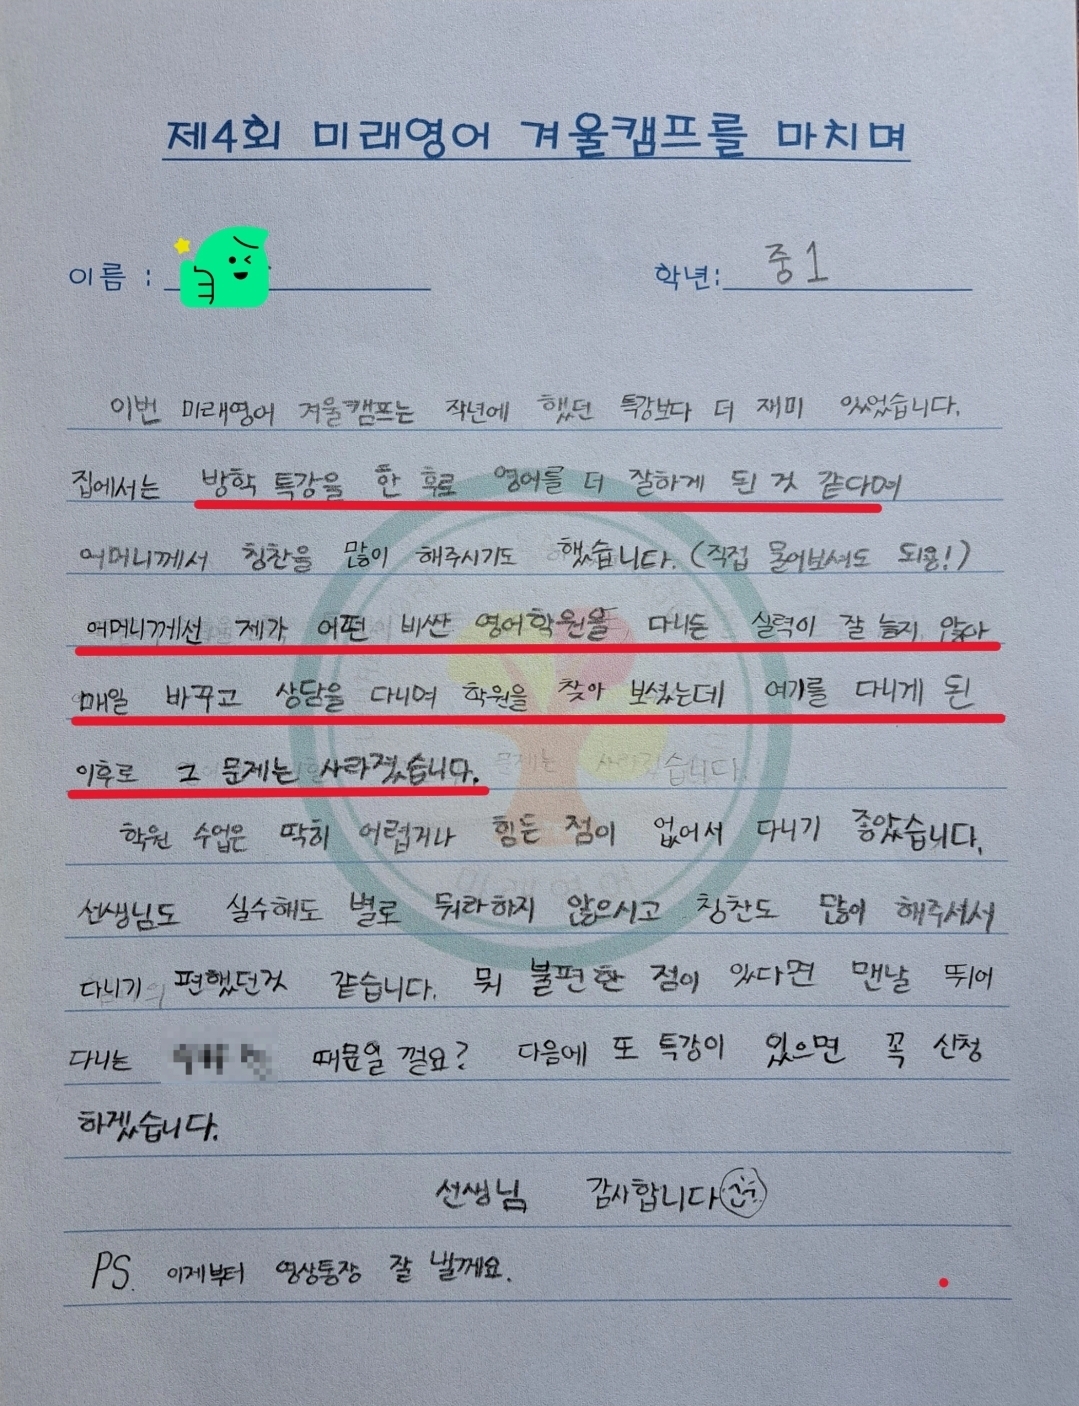 제4회 미래영어 겨울캠프를 마치며
이름 :
학년: 중1
이번 미래영어 겨울캠프는 작년에 했던 특강보다 더 재미 있었습니다.
집에서는 방학 특강을 한 후로 영어를 더 잘하게 된 것 같다며
어머니께서 칭찬을 많이 해주시기도 했습니다. (직접 물어보셔도 되용!)
어머니께선 제가 어떤 비싼 영어학원을 다니든 실력이 잘 늘지 않아
매일 바꾸고 상담을 다니며 학원을 찾아 보셨는데 여기를 다니게 된
이후로 그 문제는 사라졌습니다.
학원 수업은 딱히 어렵거나 힘든 점이 없어서 다니기 좋았습니다.
선생님도 실수해도 별로 뭐라하지 않으시고 칭찬도 많이 해주셔서
다니기 편했던것 같습니다. 뭐 불편한 점이 있다면 맨날 뛰어
다니는 때문일 껄요? 다음에 또 특강이 있으면 꼭 신청
하겠습니다.
선생님 감사합니다
PS. 이제부터 영상통장 잘 낼께요.
미래영어